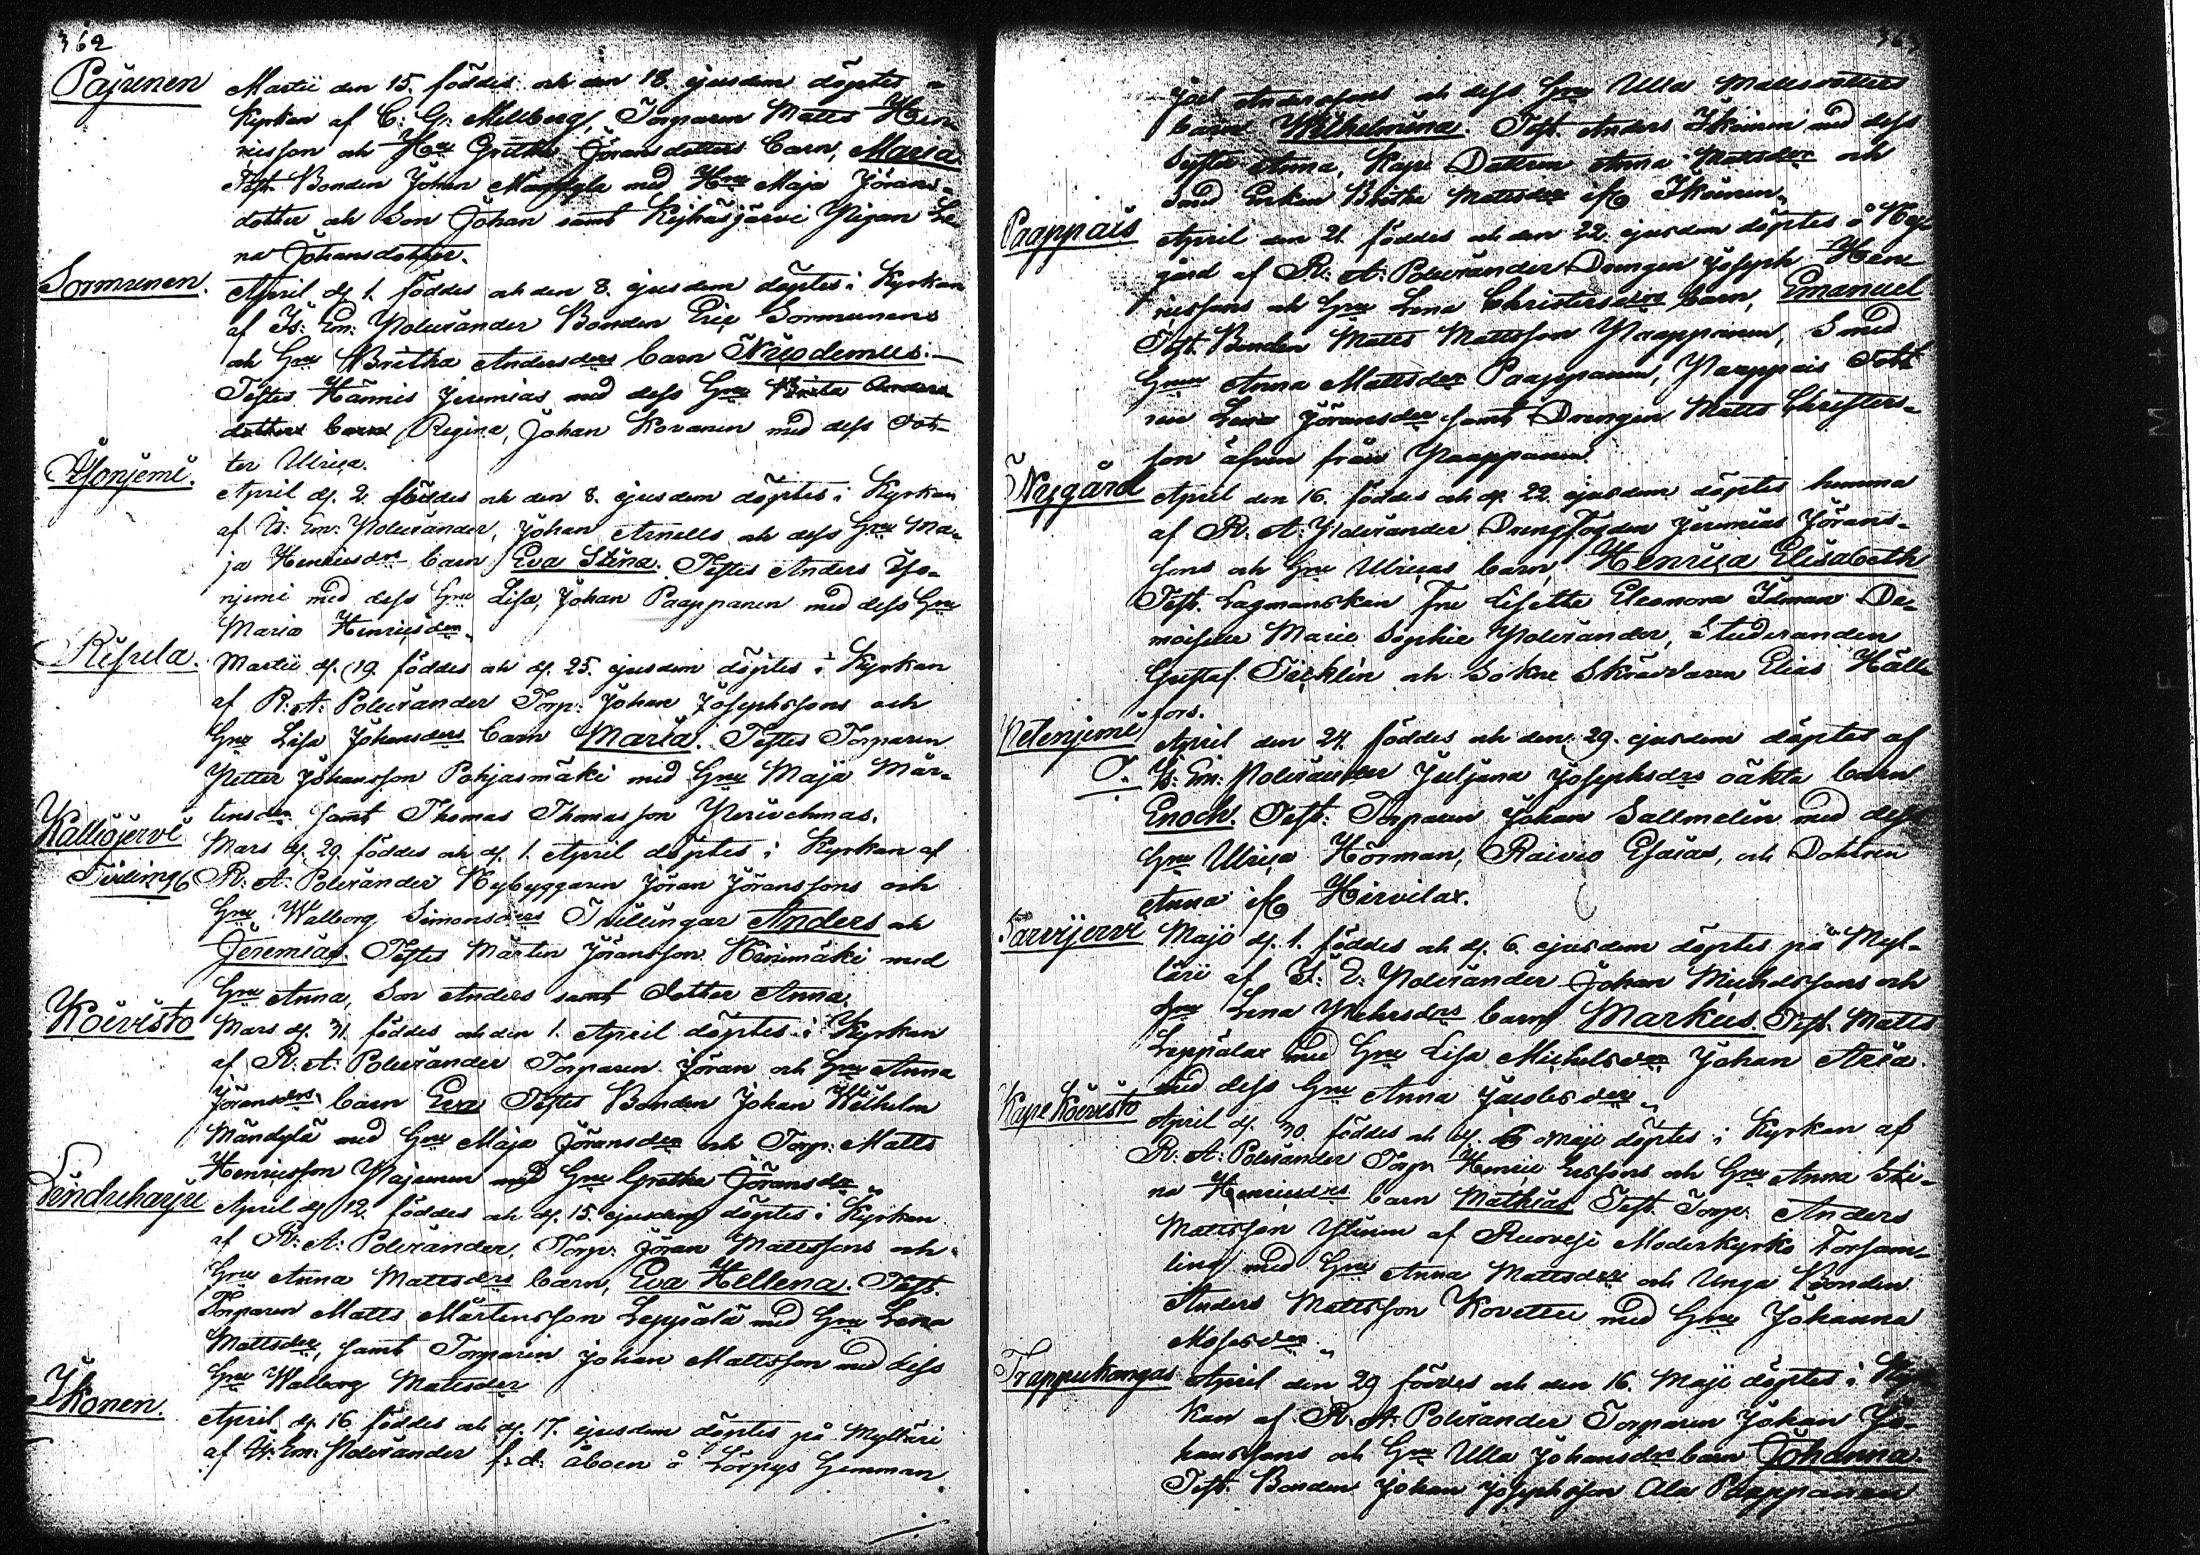 362
Pajunen
Martii den 15. föddes och den 18. ejusdem döptes i
Kyrkan af C. G. Mellberg, Torparen Matts Hen-
ricsson och Hru Gretha Jöransdotters barn, Maria
Test. Bonden Johan Mändylä med Hru Maja Jörans-
dotter och Son Johan samt Keihäsjärvi Pigan Le-
na Johansdotter.
Sormunen.
April d. 1. föddes och den 8. ejusdem döptes i Kyrkan
af Is: Em: Polviander Bonden Eric Sormunens
och Hru Britha Andersdrs barn Nicodemus.
Testes Hännis Jeremias med dess Hru Brita Anders
dotters barn Regina, Johan Kovanen med dess Dot-
ter Ulrica.
April d. 2. föddes och den 8. ejusdem döptes i Kyrkan
af Is: Em: Polviander, Johan Arnells och dess Hru Ma-
ja Henricsdrs barn Eva Stina. Testes Anders Iso-
njemi med dess Hru Lisa, Johan Paappanen med dess Hru
Maria Henricsder.
Martii d. 19. föddes och d. 25. ejusdem döptes i Kyrkan
af R: A: Polviander Torp: Johan Josephssons och
Hru Lisa Johansdrs barn Maria. Testes Torparen
Petter Johansson Pohjasmäki med Hru Maja Mår-
tensder samt Thomas Thomasson
Kalliojervi
Mars d. 29. föddes och d. 1. April döptes i Kyrkan af
R: A: Polviander Nybyggaren Jöran Jöranssons och
Hru Walborg Simonsdrs Tvillingar Anders och
Jeremias. Testes Mårten Jöransson Kinimäki med
Hru Anna, Son Anders samt Dotter Anna.
Koivisto
Mars d. 31. föddes och den 1. April döptes i Kyrkan
af R: A: Polviander Torparen Jöran och Hru Anna
Jöransdrs barn Eva Testes Bonden Johan Wilhelm
Mändylä med Hru Maja Jöransder och Torp: Matts
Henricsson Pajunen med Hru Gretha Jöransder
April d. 12. föddes och d. 15. ejusdem döptes i Kyrkan
af R: A: Polviander, Torp: Jöran Mattssons och
Hru Anna Mattsdrs barn, Eva Hellena. Test.
Torparen Matts Mårtensson Leppälä med Hru Lena
Mattsder, samt Torparen Johan Mattsson med dess
Hru Walborg Mattsder
Ikonen.
April d. 16 föddes och d. 17. ejusdem döptes på Mylläri
af Is: Em: Polviander f. d. åboen å Lörpys Hemman
363
Joel Anderssons och dess Hru Ulla Mattsdotters
barn Wilhelmina. Test. Anders Ikoinen med dess
Syster Anna, Kape Dottren Anna Mattsder och
Smed Enkan Britha Mattsder ifr Ikoinen.
Paappais
April den 21. föddes och den 22. ejusdem döptes å Ny-
gård af R: A: Polviander Drengen Joseph Hen-
ricssons och Hru Lena Christersdrs barn, Emanuel
Test. Bonden Matts Mattsson Paappanen, Smed
Hrun Anna Mattsder Paappanen, Paappais Dott-
ren Lena Jöransder samt Drengen Matts Christers-
son äfven från Paappanen.
Nygård
April den 16. föddes och d. 22. ejusdem döptes hemma
af R: A: Polviander Drengfogden Jeremias Jörans-
sons och Hru Ulricas barn, Henrica Elisabeth
Test. Lagmanskan Fru Lisette Eleonora Idman De-
moiselle Marie Sophie Polviander, Studeranden
Gustaf Ticklén och Sokne Skräddaren Elias Häll-
fors.
Petenjemi
O.
April den 24. föddes och den 29. ejusdem döptes af
Is: Em: Polviander Juljana Josephsdrs oäkta barn
Enoch. Test. Torparen Johan Sallmelin med dess
Hru Ulrica Hörman, Raivio Esaias, och Dottren
Anna ifr Hirvilax.
Sarvijervi
Maji d. 1. föddes och d. 6. ejusdem döptes på Myl-
läri af I: E: Polviander Johan Michelssons och
Hru Lena Pehrsdrs barn Markus. Test. Matts
Leppälax med Hru Lisa Michelsder Johan Aria
med dess Hru Anna Jacobsder
Kape Koivisto
April d. 30. föddes och d. 6 Maji döptes i Kyrkan af
R: A: Polviander Torp. Henric Ericssons och Hru Anna Sti-
na Henricsdrs barn Mathias Test. Torp: Anders
Mattsson Ylinen af Ruovesi Moderkyrko Försam-
ling med Hru Anna Mattsder och Unga Bonden
Anders Mattsson Kovettu med Hru Johanna
Mosesder
Trappukangas
April den 29 föddes och den 16. Maji döptes i Kyr-
kan af R: A: Polviander Torparen Johan Jo-
hanssons och Hru Ulla Johansdrs barn Johanna.
Test. Bonden Johan Josephsson Ala Paappanen